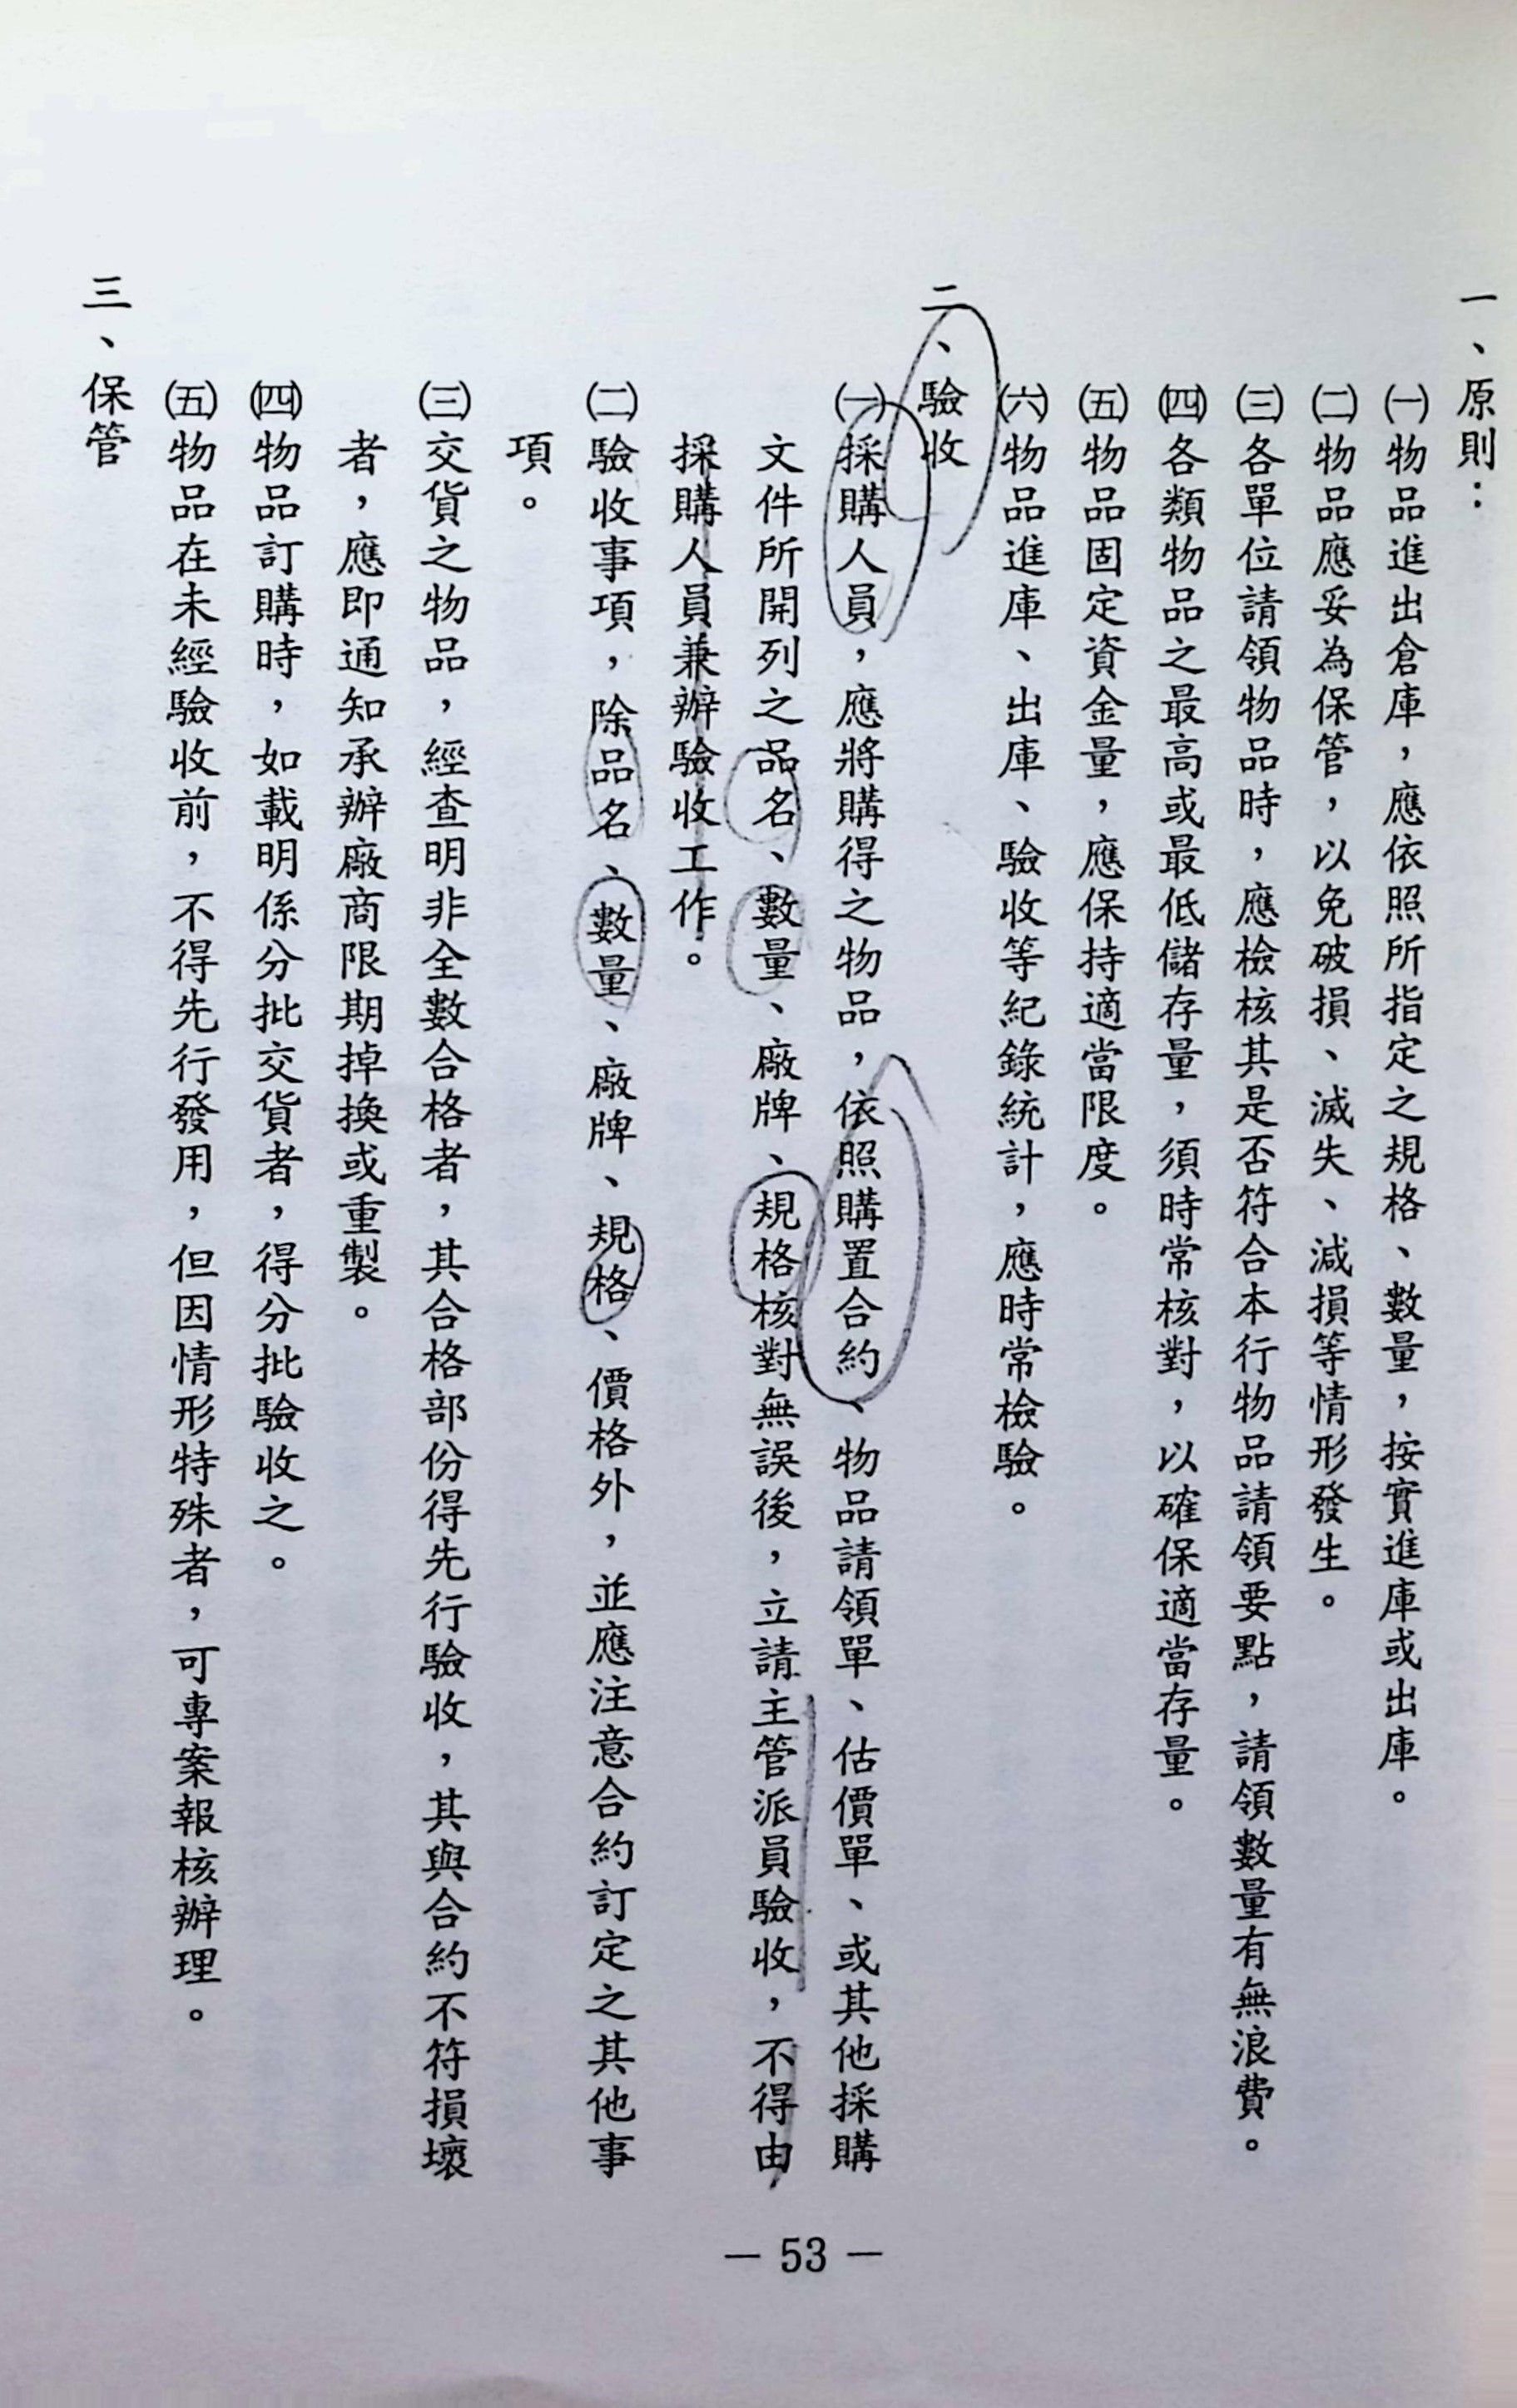 一、原則：
㈠物品進出倉庫，應依照所指定之規格、數量，按實進庫或出庫。
㈡物品應妥為保管，以免破損、滅失、減損等情形發生。
㈢各單位請領物品時，應檢核其是否符合本行物品請領要點，請領數量有無浪費。
㈣各類物品之最高或最低儲存量，須時常核對，以確保適當存量。
㈤物品固定資金量，應保持適當限度。
㈥物品進庫、出庫、驗收等紀錄統計，應時常檢驗。
二、驗收
㈠採購人員，應將購得之物品，依照購置合約、物品請領單、估價單、或其他採購
文件所開列之品名、數量、廠牌、規格核對無誤後，立請主管派員驗收，不得由
採購人員兼辦驗收工作。
㈡驗收事項，除品名、數量、廠牌、規格、價格外，並應注意合約訂定之其他事
項。
㈢交貨之物品，經查明非全數合格者，其合格部份得先行驗收，其與合約不符損壞
者，應即通知承辦廠商限期掉換或重製。
㈣物品訂購時，如載明係分批交貨者，得分批驗收之。
㈤物品在未經驗收前，不得先行發用，但因情形特殊者，可專案報核辦理。
三、保管
— 53 —